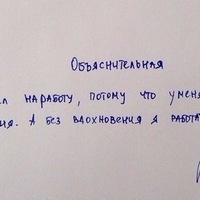 Объяснительная
на работу, потому что у меня
А без вдохновения я